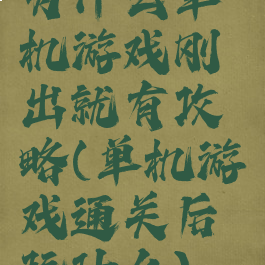 有什么单
机游戏刚
出就有攻
略(单机游
戏通关后